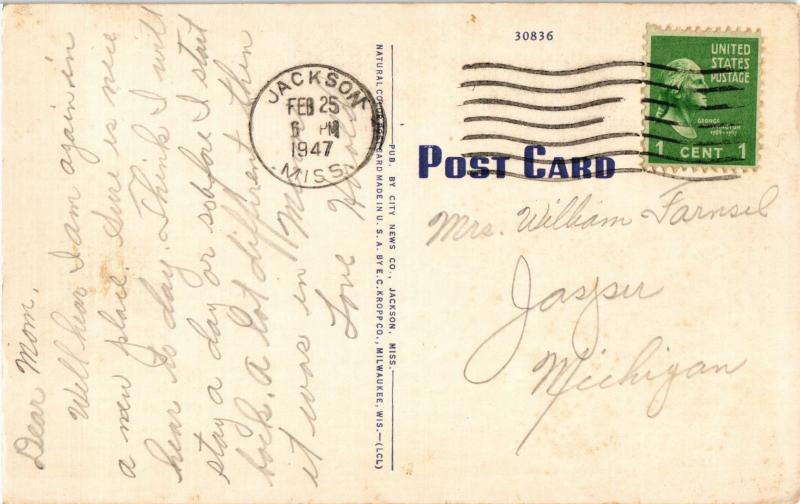 30836
UNITED
STATES
POSTAGE
GEORGE
1 CENT 1
JACKSON
FEB 25
6 PM
1947
MISS.
POST CARD
Mrs. William Farnsel
Jasper
Michigan
NATURAL COLORED CARD MADE IN U. S. A. BY E. C. KROPP CO., MILWAUKEE, WIS.—(LCL)
PUB. BY CITY NEWS CO., JACKSON, MISS.
Dear Mom,
Well hear I am again in
a new place. Sure is nice
hear to day. Think I will
stay a day or so before I start
back. A lot different then
it was in
Love